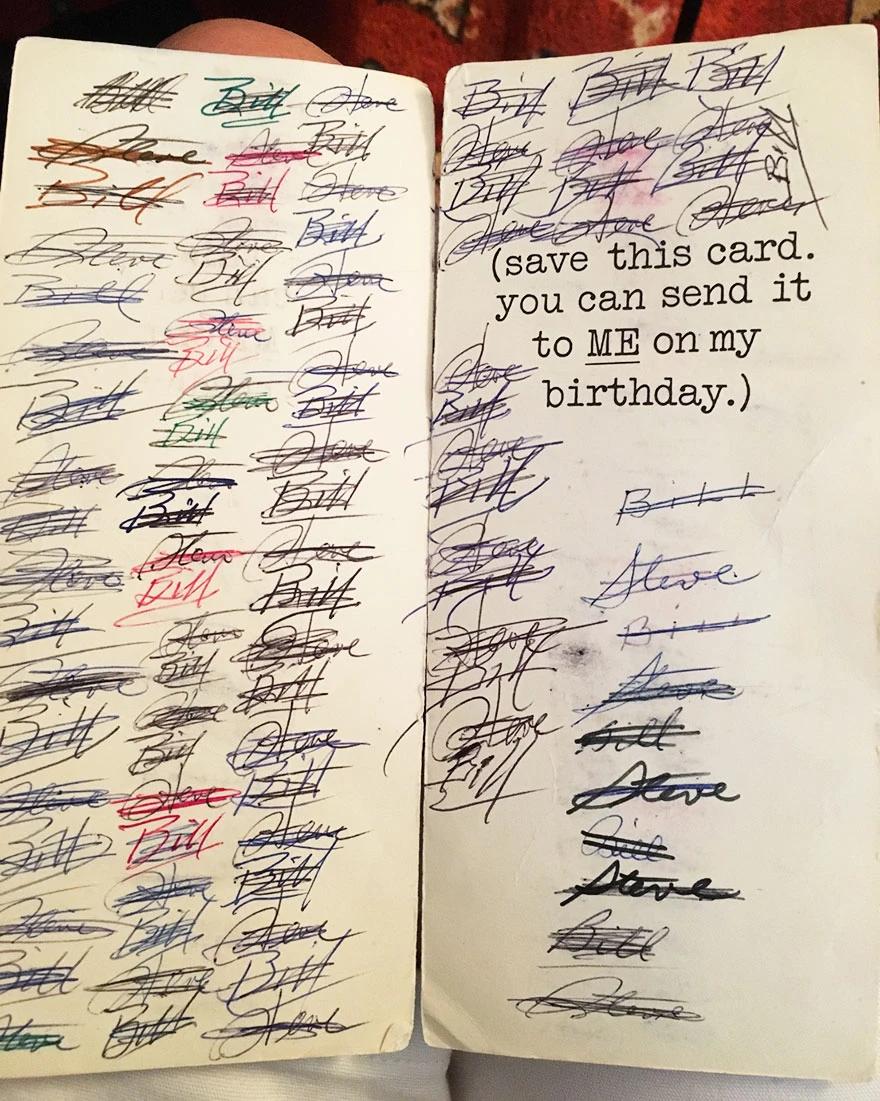 Bill
Steve
Bill
Steve
Bill
Steve
Bill
Steve
Bill
Steve
Bill
Steve
Bill
Steve
Bill
Steve
Bill
Steve
Bill
Steve
Bill
Steve
Bill
Steve
Bill
Steve
Bill
Steve
Bill
Steve
Bill
Steve
Bill
Steve
Bill
Steve
Bill
Steve
Bill
Steve
Bill
Steve
Bill
Steve
Bill
Steve
Bill
Steve
Bill
Steve
Bill
Steve
Bill
Steve
Bill
Steve
Bill
Steve
Bill
Steve
Bill
Steve
Bill Bill Bill
Steve Steve Steve
Bill Bill Bill
Bill
Steve Steve Steve
(save this card.
you can send it
to ME on my
birthday.)
Steve
Bill
Steve
Bill
Steve
Bill
Steve
Bill
Steve
Bill
Bill
Steve
Bill
Steve
Bill
Steve
Bill
Steve
Bill
Steve